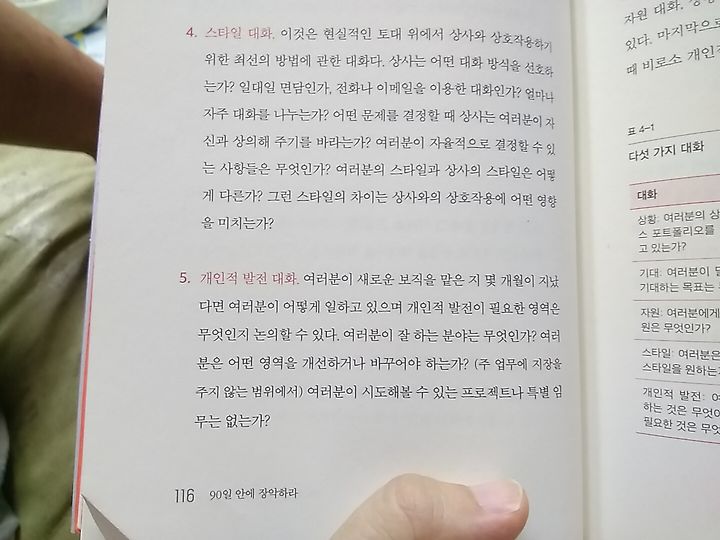 4. 스타일 대화. 이것은 현실적인 토대 위에서 상사와 상호작용하기
위한 최선의 방법에 관한 대화다. 상사는 어떤 대화 방식을 선호하
는가? 일대일 면담인가, 전화나 이메일을 이용한 대화인가? 얼마나
자주 대화를 나누는가? 어떤 문제를 결정할 때 상사는 여러분이 자
신과 상의해 주기를 바라는가? 여러분이 자율적으로 결정할 수 있
는 사항들은 무엇인가? 여러분의 스타일과 상사의 스타일은 어떻
게 다른가? 그런 스타일의 차이는 상사와의 상호작용에 어떤 영향
을 미치는가?
5. 개인적 발전 대화. 여러분이 새로운 보직을 맡은 지 몇 개월이 지났
다면 여러분이 어떻게 일하고 있으며 개인적 발전이 필요한 영역은
무엇인지 논의할 수 있다. 여러분이 잘 하는 분야는 무엇인가? 여러
분은 어떤 영역을 개선하거나 바꾸어야 하는가? (주 업무에 지장을
주지 않는 범위에서) 여러분이 시도해볼 수 있는 프로젝트나 특별 임
무는 없는가?
116 90일 안에 장악하라
자원 대화,
있다. 마지막으로
때 비로소 개인
표 4-1
다섯 가지 대화
대화
상황: 여러분의 상
스 포트폴리오를
고 있는가?
기대: 여러분이
기대하는 목표는
자원: 여러분에게
원은 무엇인가?
스타일: 여러분은
스타일을 원하는
개인적 발전:
하는 것은 무엇
필요한 것은 무엇